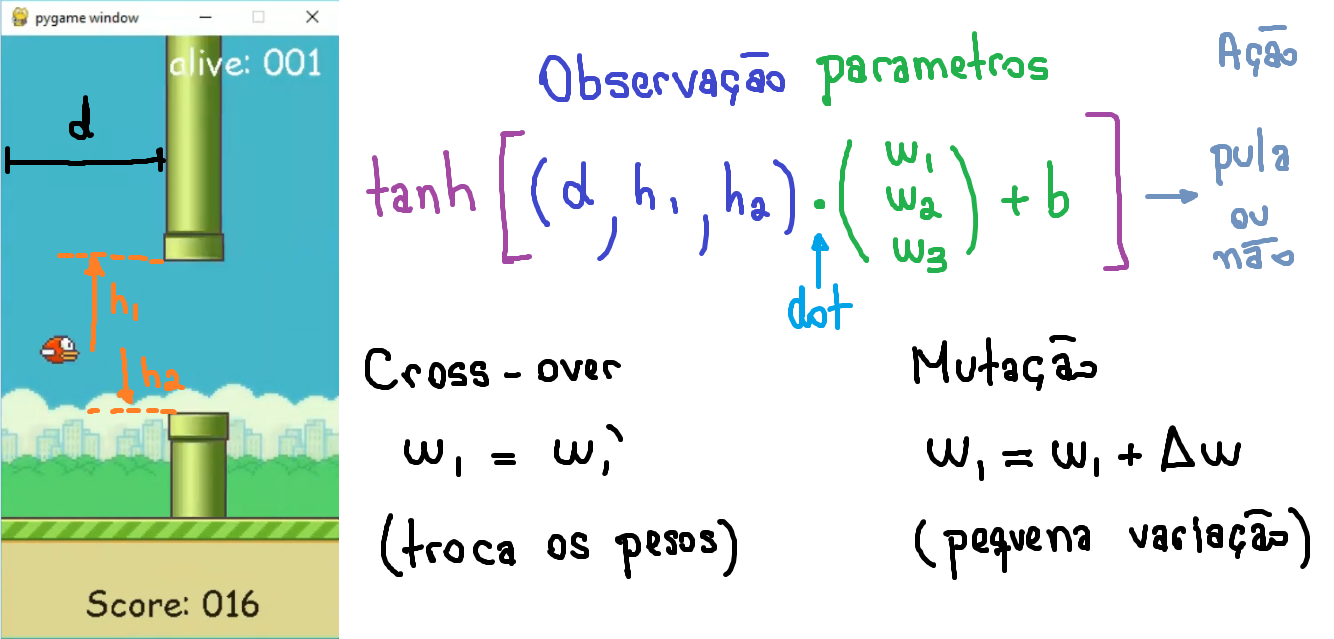 pygame window
alive: 001
d
h₁
h₂
Score: 016
Observação parametros
Ação
tanh [(d, h₁, h₂) · (w₁ w₂ w₃) + b] → pula ou não
dot
Cross-over
w₁ = w₁`
(troca os pesos)
Mutação
w₁ = w₁ + Δw
(pequena variação)